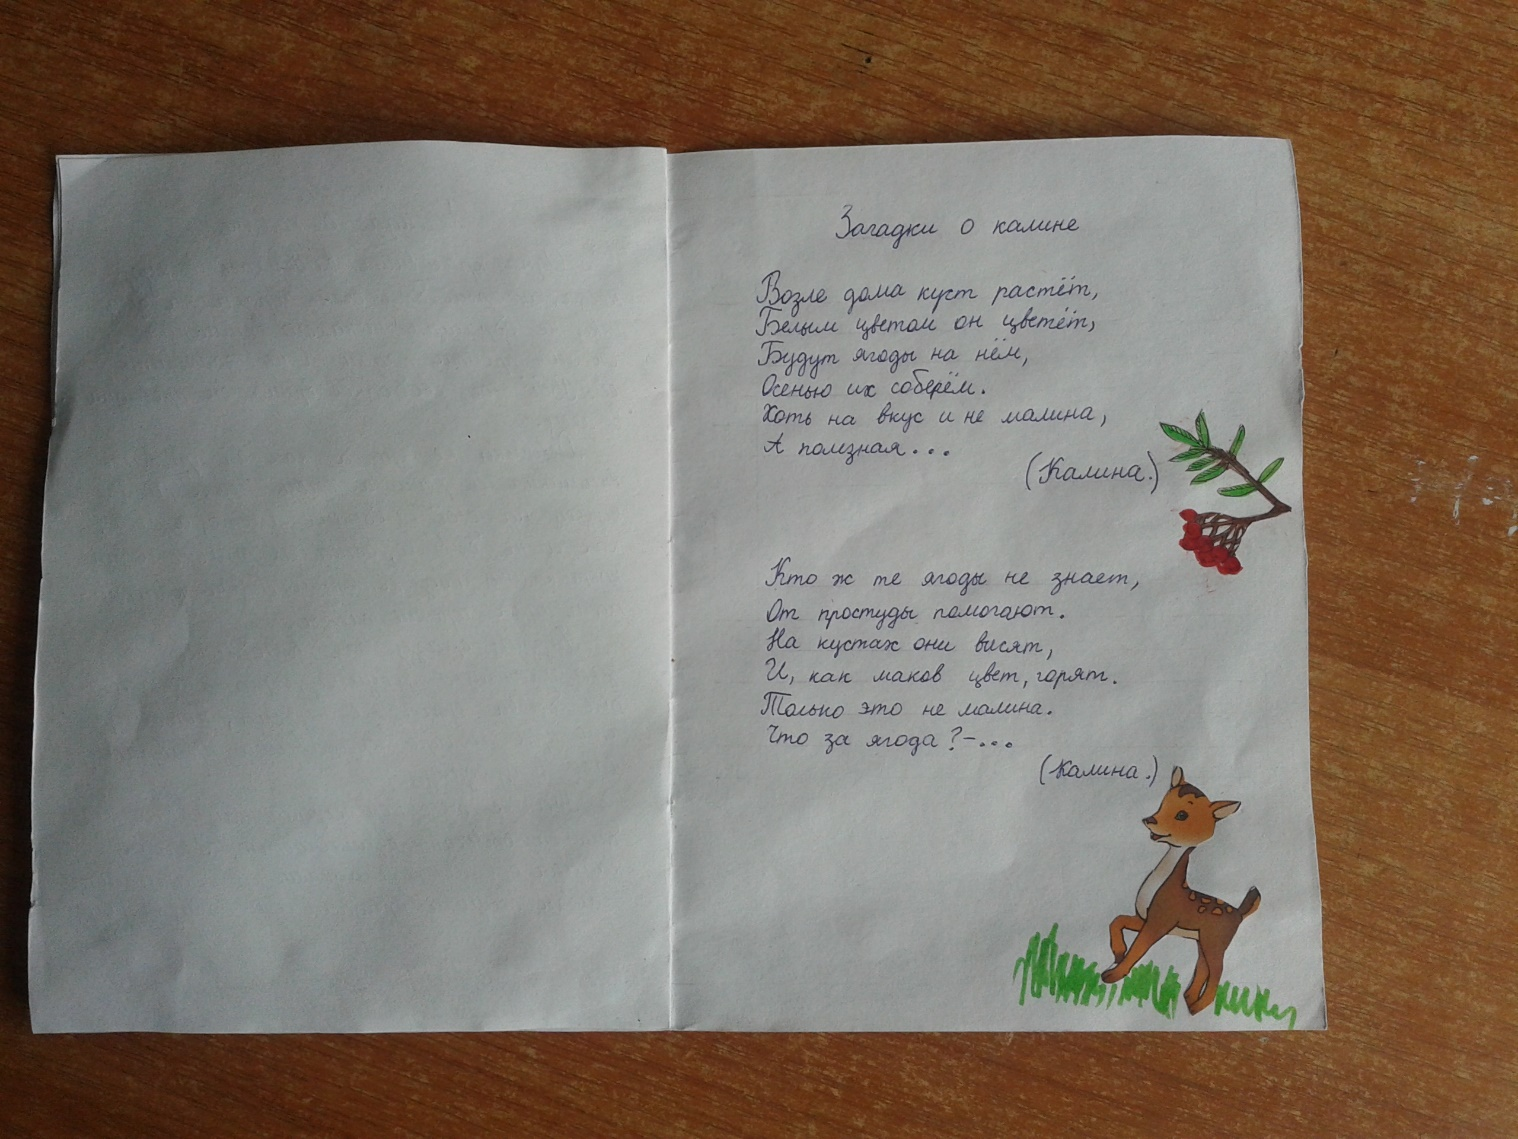 Загадки о калине
Возле дома куст растёт,
Белым цветом он цветёт,
Будут ягоды на нём,
Осенью их соберём.
Хоть на вкус и не малина,
А полезная...
(Калина.)
Кто ж те ягоды не знает,
От простуды помогают.
На кустах они висят,
И, как маков цвет, горят.
Только это не малина.
Что за ягода?-...
(Калина.)